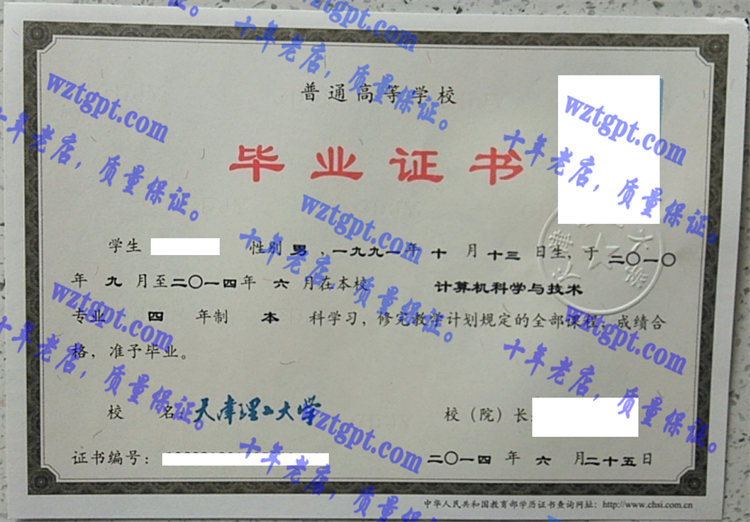 普通高等学校
毕业证书
学生 性别 男 ,一九九一年 十 月 十三 日生,于 二〇一〇
年 九 月至二〇一四年 六 月在本校 计算机科学与技术
专业 四 年制 本 科学习,修完教学计划规定的全部课程,成绩合
格,准予毕业。
校 名: 天津理工大学 校(院)长:
证书编号: 二〇一四 年 六 月二十五日
中华人民共和国教育部学历证书查询网址: http://www.chsi.com.cn
wztgpt.com
十年老店,质量保证。